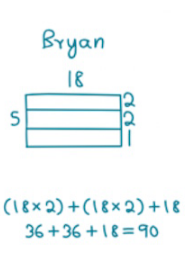 Bryan
18
5
2
2
1
(18×2)+(18×2)+18
36+36+18=90